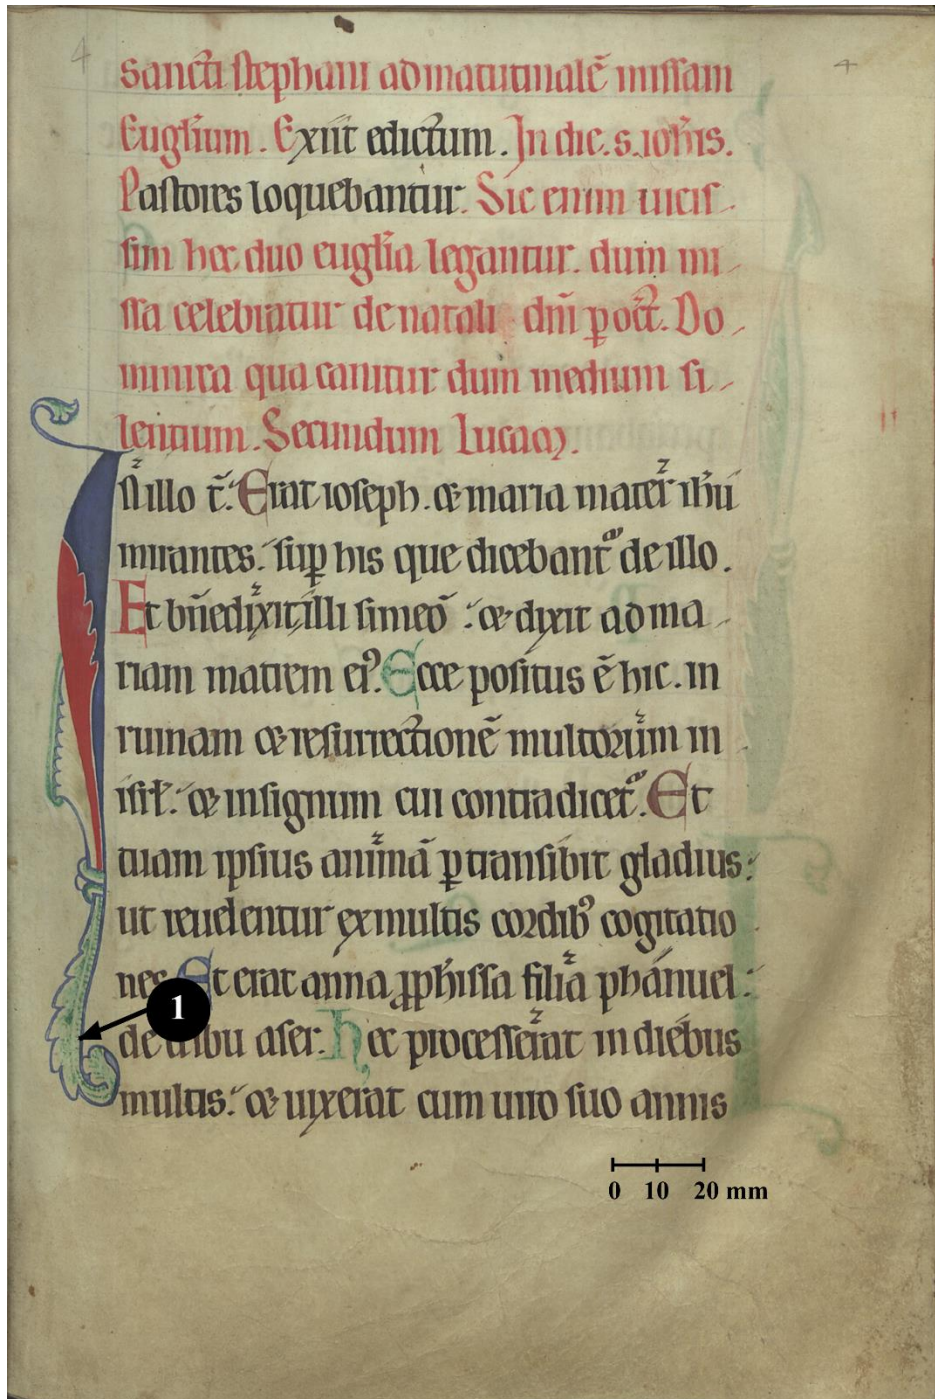 4 4
sancti stephani ad matutinalē missam
Euglium. Exiit edictum. In die. s. iohis.
Pastores loquebantur. Sic enim uicis
sim hec duo euglia legantur. dum mi
ssa celebratur de natali dn̄i p oct. Do
minica qua canitur dum medium si
lentium. Secundum Lucam.
In illo t̄. Erat ioseph. & maria mater ihū
mirantes. sup his que dicebant de illo.
Et bn̄edixit illi simeō. & dixit ad ma
riam matrem ei⁹. Ecce positus ē hic. in
ruinam & resurrectionē multorum in
isrl. & in signum cui contradicet. Et
tuam ipsius animā ptransibit gladius.
ut reuelentur ex multis cordib⁹ cogitatio
nes. Et erat anna pphissa filia phanuel.
de tribu aser. hec processerat in diebus
multis. & uixerat cum uiro suo annis
1
0 10 20 mm